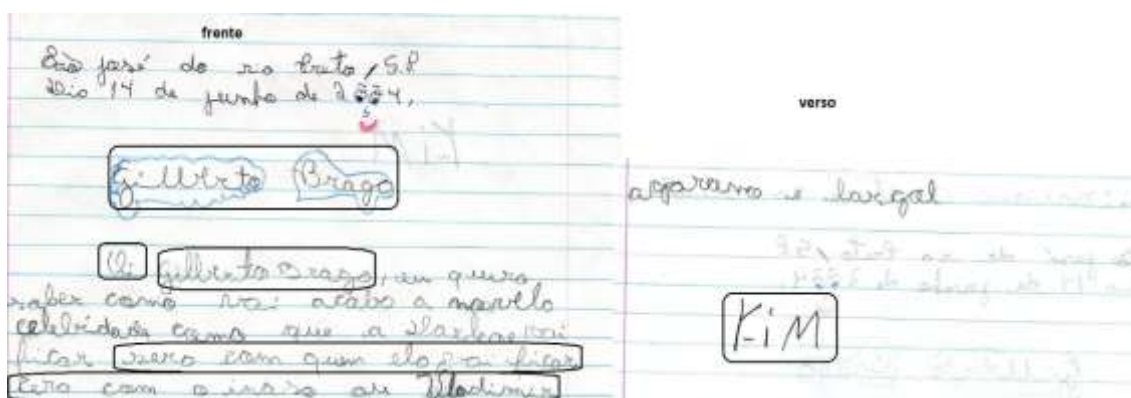 frente
São josé do rio Preto, S.P
Dia 14 de junho de 2 4,
Gilberto Brago
Oi Gilberto Brago, eu quero
saber como vai acabo a novelo
celebridade como que a vai
ficar sero com quem elo vai ficar
sero com o inaso ou Vladimir
verso
agarano e largol
KiM